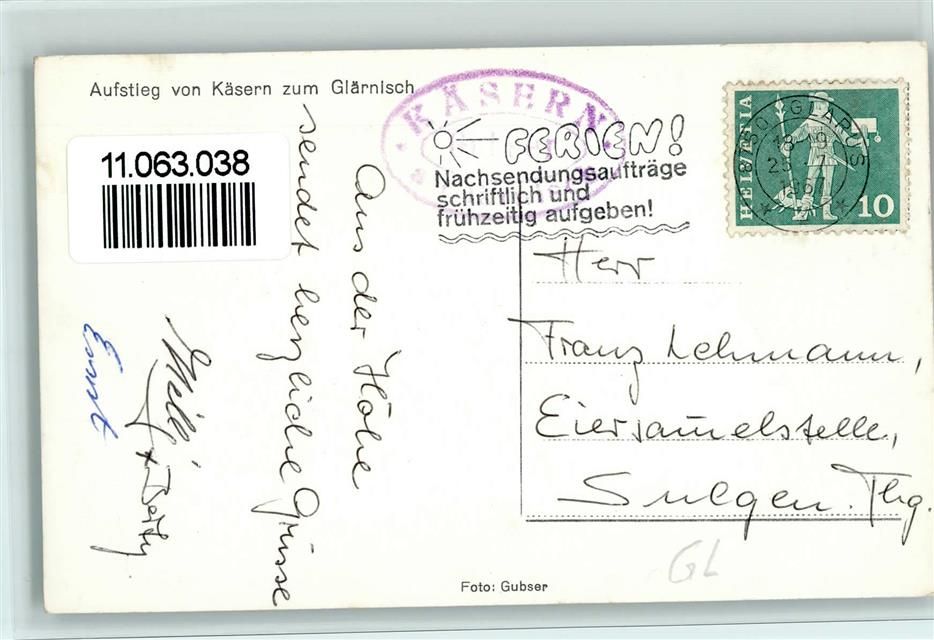 Aufstieg von Käsern zum Glärnisch
11.063.038
KÄSERN
FERIEN!
Nachsendungsaufträge
schriftlich und
frühzeitig aufgeben!
HELVETIA
10
GLARUS
Aus der Höhe
sendet herzliche Grüsse
Willi
+ Betty
Ernst
Herr
Franz Lehmann,
Eiersammelstelle,
Sulgen. Thg.
Foto: Gubser
GL